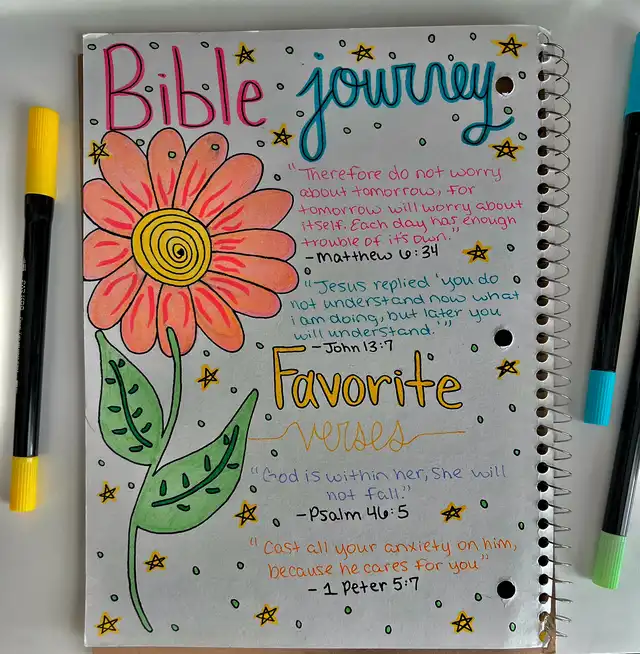 Bible journey
"Therefore do not worry
about tomorrow, for
tomorrow will worry about
itself. Each day has enough
trouble of it's own."
- Matthew 6:34
"Jesus replied 'you do
not understand now what
i am doing, but later you
will understand.'"
- John 13:7
Favorite
verses
"God is within her, she will
not fall."
- Psalm 46:5
"Cast all your anxiety on him,
because he cares for you"
- 1 Peter 5:7